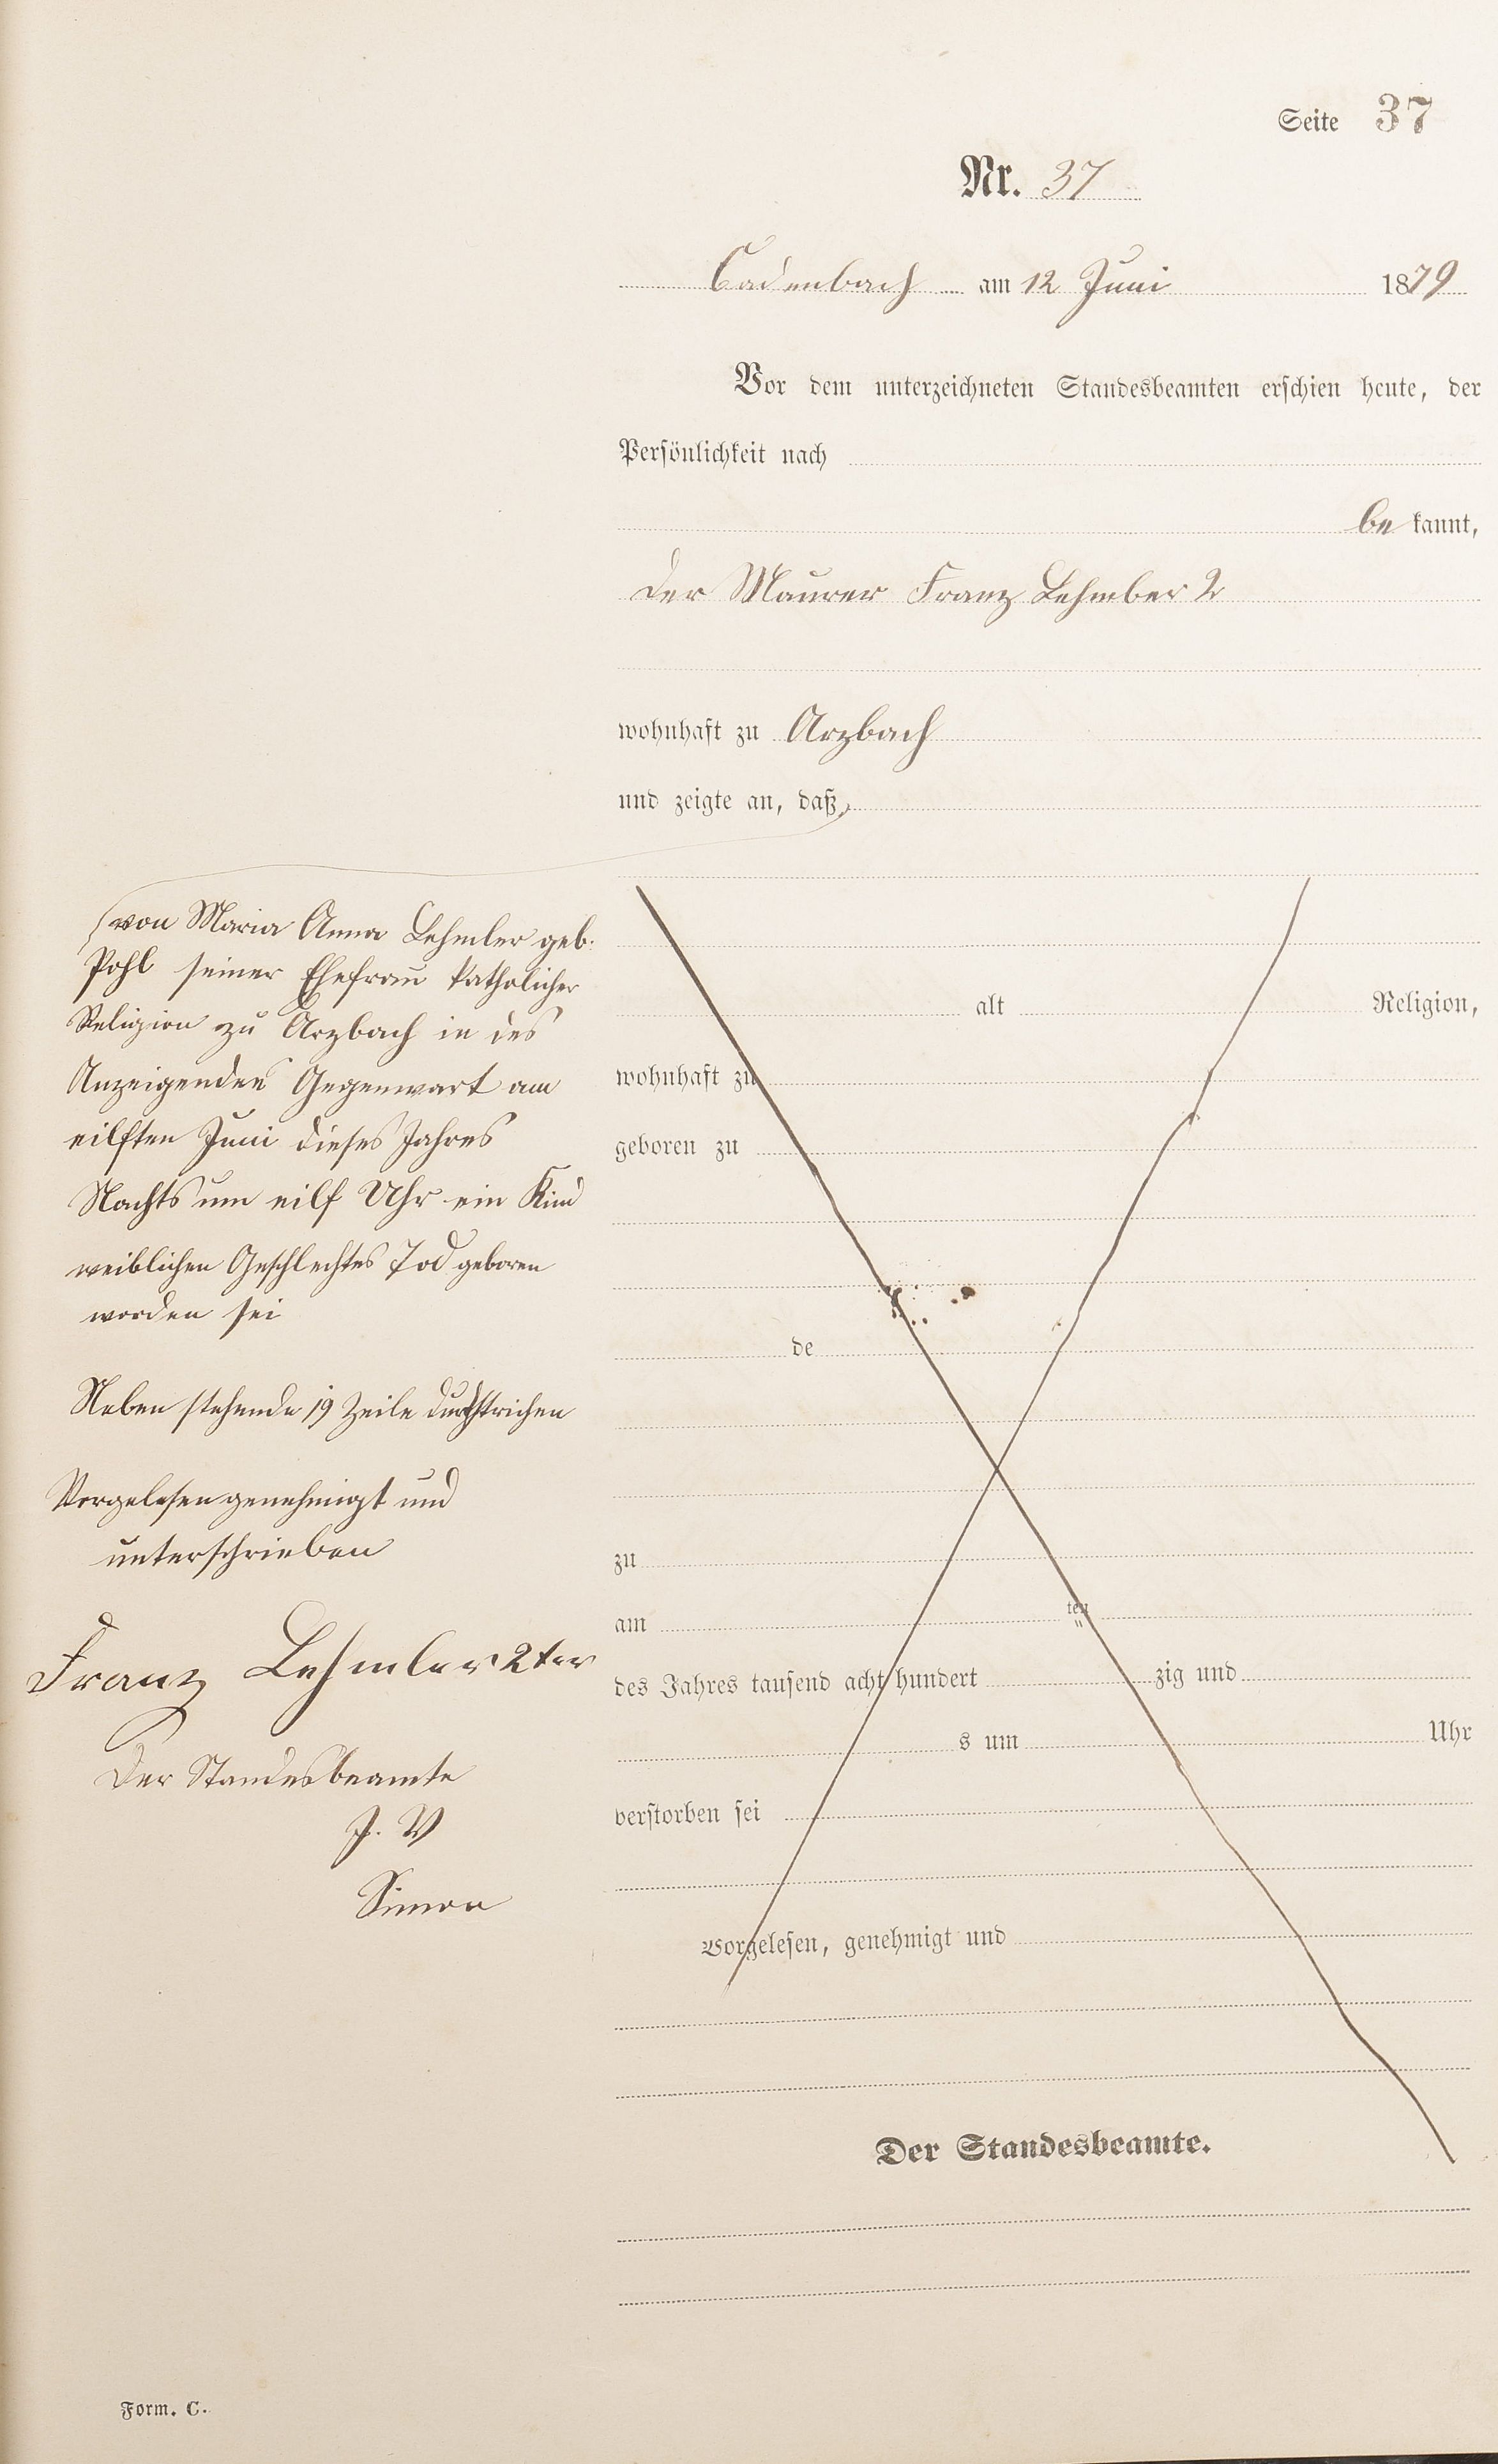 Seite 37
Nr. 37
Cadenbach am 12 Juni 1879
Vor dem unterzeichneten Standesbeamten erschien heute, der
Persönlichkeit nach
be kannt,
der Maurer Franz Lehmber 2
wohnhaft zu Arzbach
und zeigte an, daß
von Maria Anna Lehmler geb.
Pohl seiner Ehefrau katholicher
Religion zu Arzbach in des
Anzeigenden Gegenwart am
eilften Juni dieses Jahres
Nachts um eilf Uhr ein Kind
weiblichen Geschlechtes Tod geboren
worden sei
Neben stehende 19 Zeile durchstrichen
Vorgelesen genehmigt und
unterschrieben
Franz Lehmler 2ter
Der Standesbeamte
J. V
Simon
alt Religion,
wohnhaft zu
geboren zu
de
zu
am ten
des Jahres tausend acht hundert zig und
s um Uhr
verstorben sei
Vorgelesen, genehmigt und
Der Standesbeamte.
Form. C.